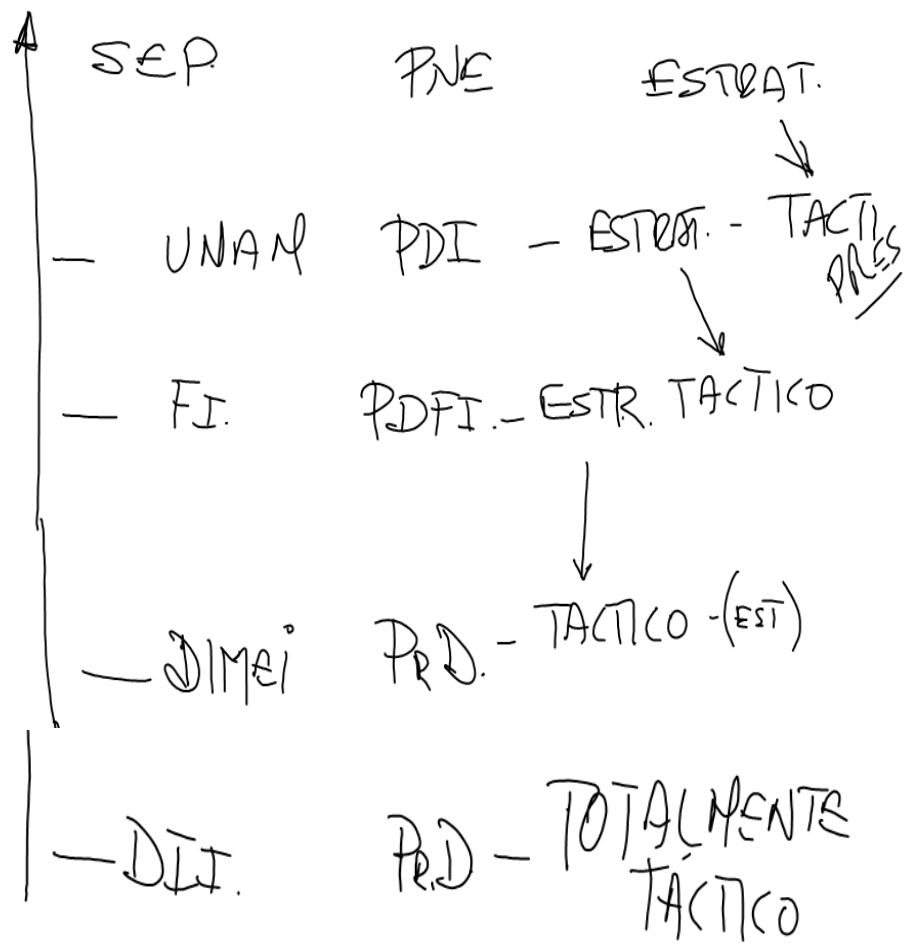 SEP. PNE ESTRAT.
— UNAM PDI – ESTRAT. - TACTI
PRES
— FI. PDFI. – ESTR. TACTICO
— DIMEI PRD. – TACTICO - (EST)
— DII. PR.D – TOTALMENTE
TÁCTICO